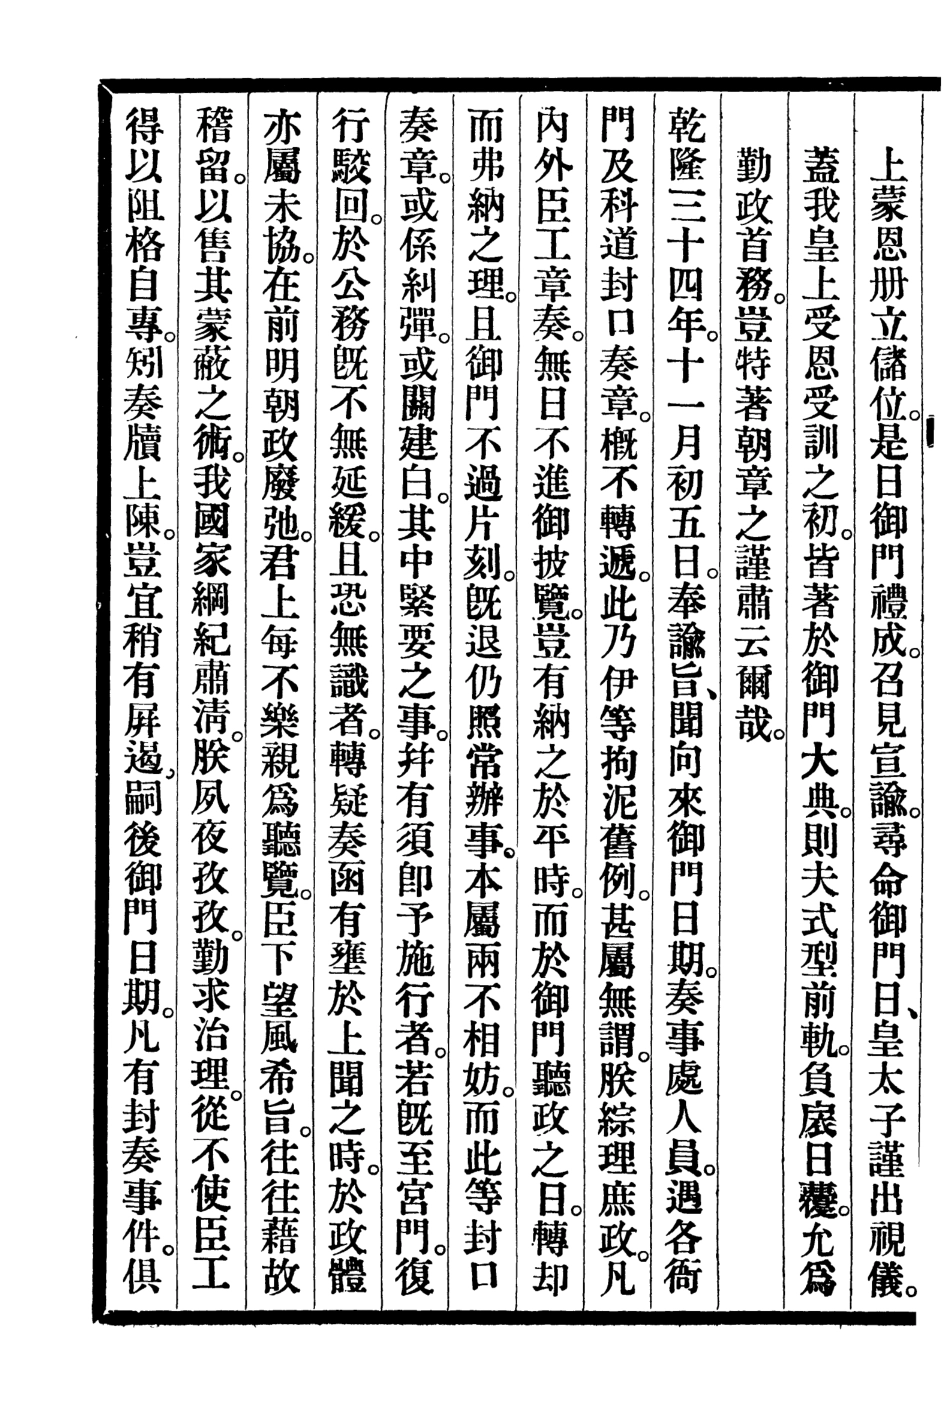 上蒙恩册立儲位。是日御門禮成。召見宣諭。尋命御門日、皇太子謹出視儀。
蓋我皇上受恩受訓之初。皆著於御門大典。則夫式型前軌。負扆日襲。允爲
勤政首務。豈特著朝章之謹肅云爾哉。
乾隆三十四年。十一月初五日。奉諭旨、聞向來御門日期。奏事處人員。遇各衙
門及科道封口奏章。槪不轉遞。此乃伊等拘泥舊例。甚屬無謂。朕綜理庶政。凡
內外臣工章奏。無日不進御披覽。豈有納之於平時。而於御門聽政之日。轉却
而弗納之理。且御門不過片刻。旣退仍照常辦事。本屬兩不相妨。而此等封口
奏章。或係糾彈。或關建白。其中緊要之事。幷有須卽予施行者。若旣至宮門。復
行駮回。於公務旣不無延緩。且恐無識者。轉疑奏函有壅於上聞之時。於政體
亦屬未協。在前明朝政廢弛。君上每不樂親爲聽覽。臣下望風希旨。往往藉故
稽留。以售其蒙蔽之術。我國家綱紀肅淸。朕夙夜孜孜。勤求治理。從不使臣工
得以阻格自專。矧奏牘上陳。豈宜稍有屛遏、嗣後御門日期。凡有封奏事件。俱